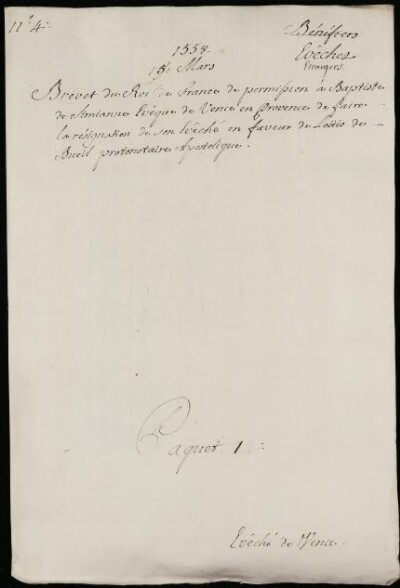 n.° 4.
Bénéfices
Evêchés
Etrangers.
1558.
15 Mars
Brevet du Roi de France de permission à Baptiste
de Simianne Evêque de Vence en Provence de faire
la résignation de son Evêché en faveur de Loüis de
Bueil protonotaire Apostolique.
Paquet 1.er
Evêché de Vence.